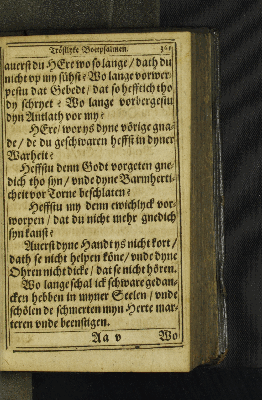 Tröstlyke Boetpsalmen.
auerst du HEre wo so lange / dath du
nicht vp my sühst? Wo lange vorwer-
pestu dat Gebedt / dat so hefftich tho
dy schryet? Wo lange vorbergestu
dyn Antlath vor my?
HEre / wor ys dyne vörige gna-
de / de du geschwaren heffst in dyner
Warheit?
Heffstu denn Godt vorgeten gne-
dich tho syn / vnde dyne Barmherti-
cheit vor Torne beschlaten?
Heffstu my denn ewichlyck vor-
worpen / dat du nicht mehr gnedich
syn kanst?
Auerst dyne Handt ys nicht kort /
dath se nicht helpen köne / vnde dyne
Ohren nicht dicke / dat se nicht hören.
Wo lange schal ick schware gedan-
cken hebben in myner Seelen / vnde
schölen de schmerten myn Herte mar-
teren vnde beenstigen.
Aa v Wo